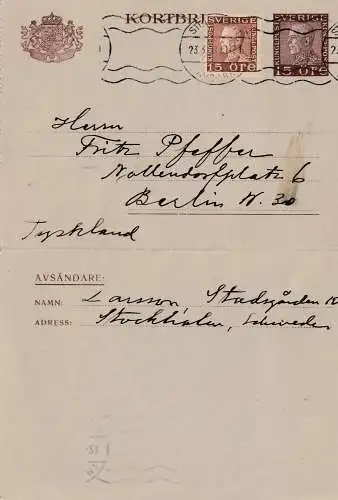 KORTBRE
SVERIGE SVERIGE
15 ÖRE 15 ÖRE
Herrn
Fritz Pfeffer
Nollendorfplatz 6
Berlin W. 30
Tyskland
AVSÄNDARE:
NAMN: Larsson Stadsgården
ADRESS: Stockholm, Schweden